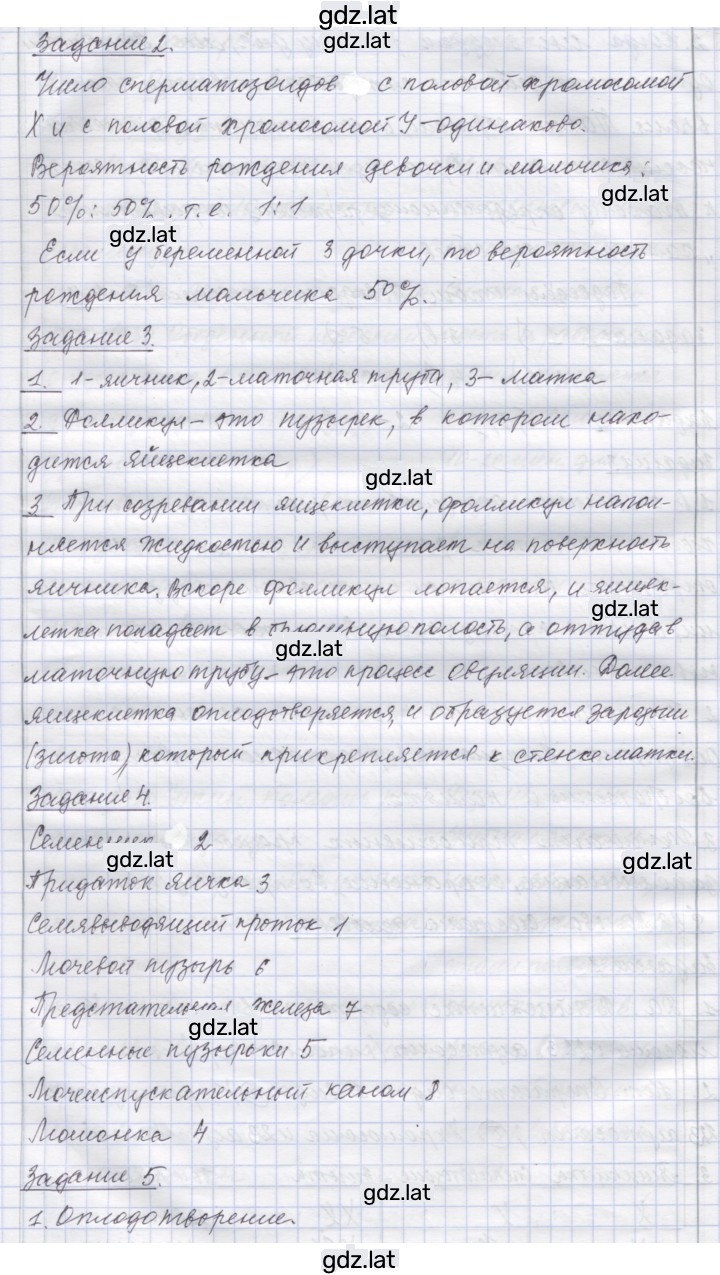 gdz.lat
Задание 2.
gdz.lat
Число сперматозоидов с половой хромосомой
X и с половой хромосомой У-одинаково.
Вероятность рождения девочки и мальчика:
gdz.lat
50%: 50%. т.е. 1:1
gdz.lat
Если у беременной 3 дочки, то вероятность
рождения мальчика 50%.
Задание 3.
1. 1-яичник, 2-маточная труба, 3- матка
2 Фолликул- это пузырек, в котором нахо-
дится яйцеклетка
gdz.lat
3 При созревании яйцеклетки, фолликул напол-
няется жидкостью и выступает на поверхность
яичника. Вскоре фолликул лопается, и яйцек-
gdz.lat
летка попадает в брюшную полость, а оттуда в
gdz.lat
маточную трубу- это процесс овуляции. Далее
яйцеклетка оплодотворяется, и образуется зародыш
(зигота), который прикрепляется к стенке матки.
Задание 4.
Семенник 2
gdz.lat
gdz.lat
Придаток яичка 3
Семявыводящий проток 1
Мочевой пузырь 6
Предстательная железа 7
gdz.lat
Семенные пузырьки 5
Мочеиспускательный канал 8
Мошонка 4
Задание 5.
gdz.lat
1. Оплодотворение.
gdz.lat